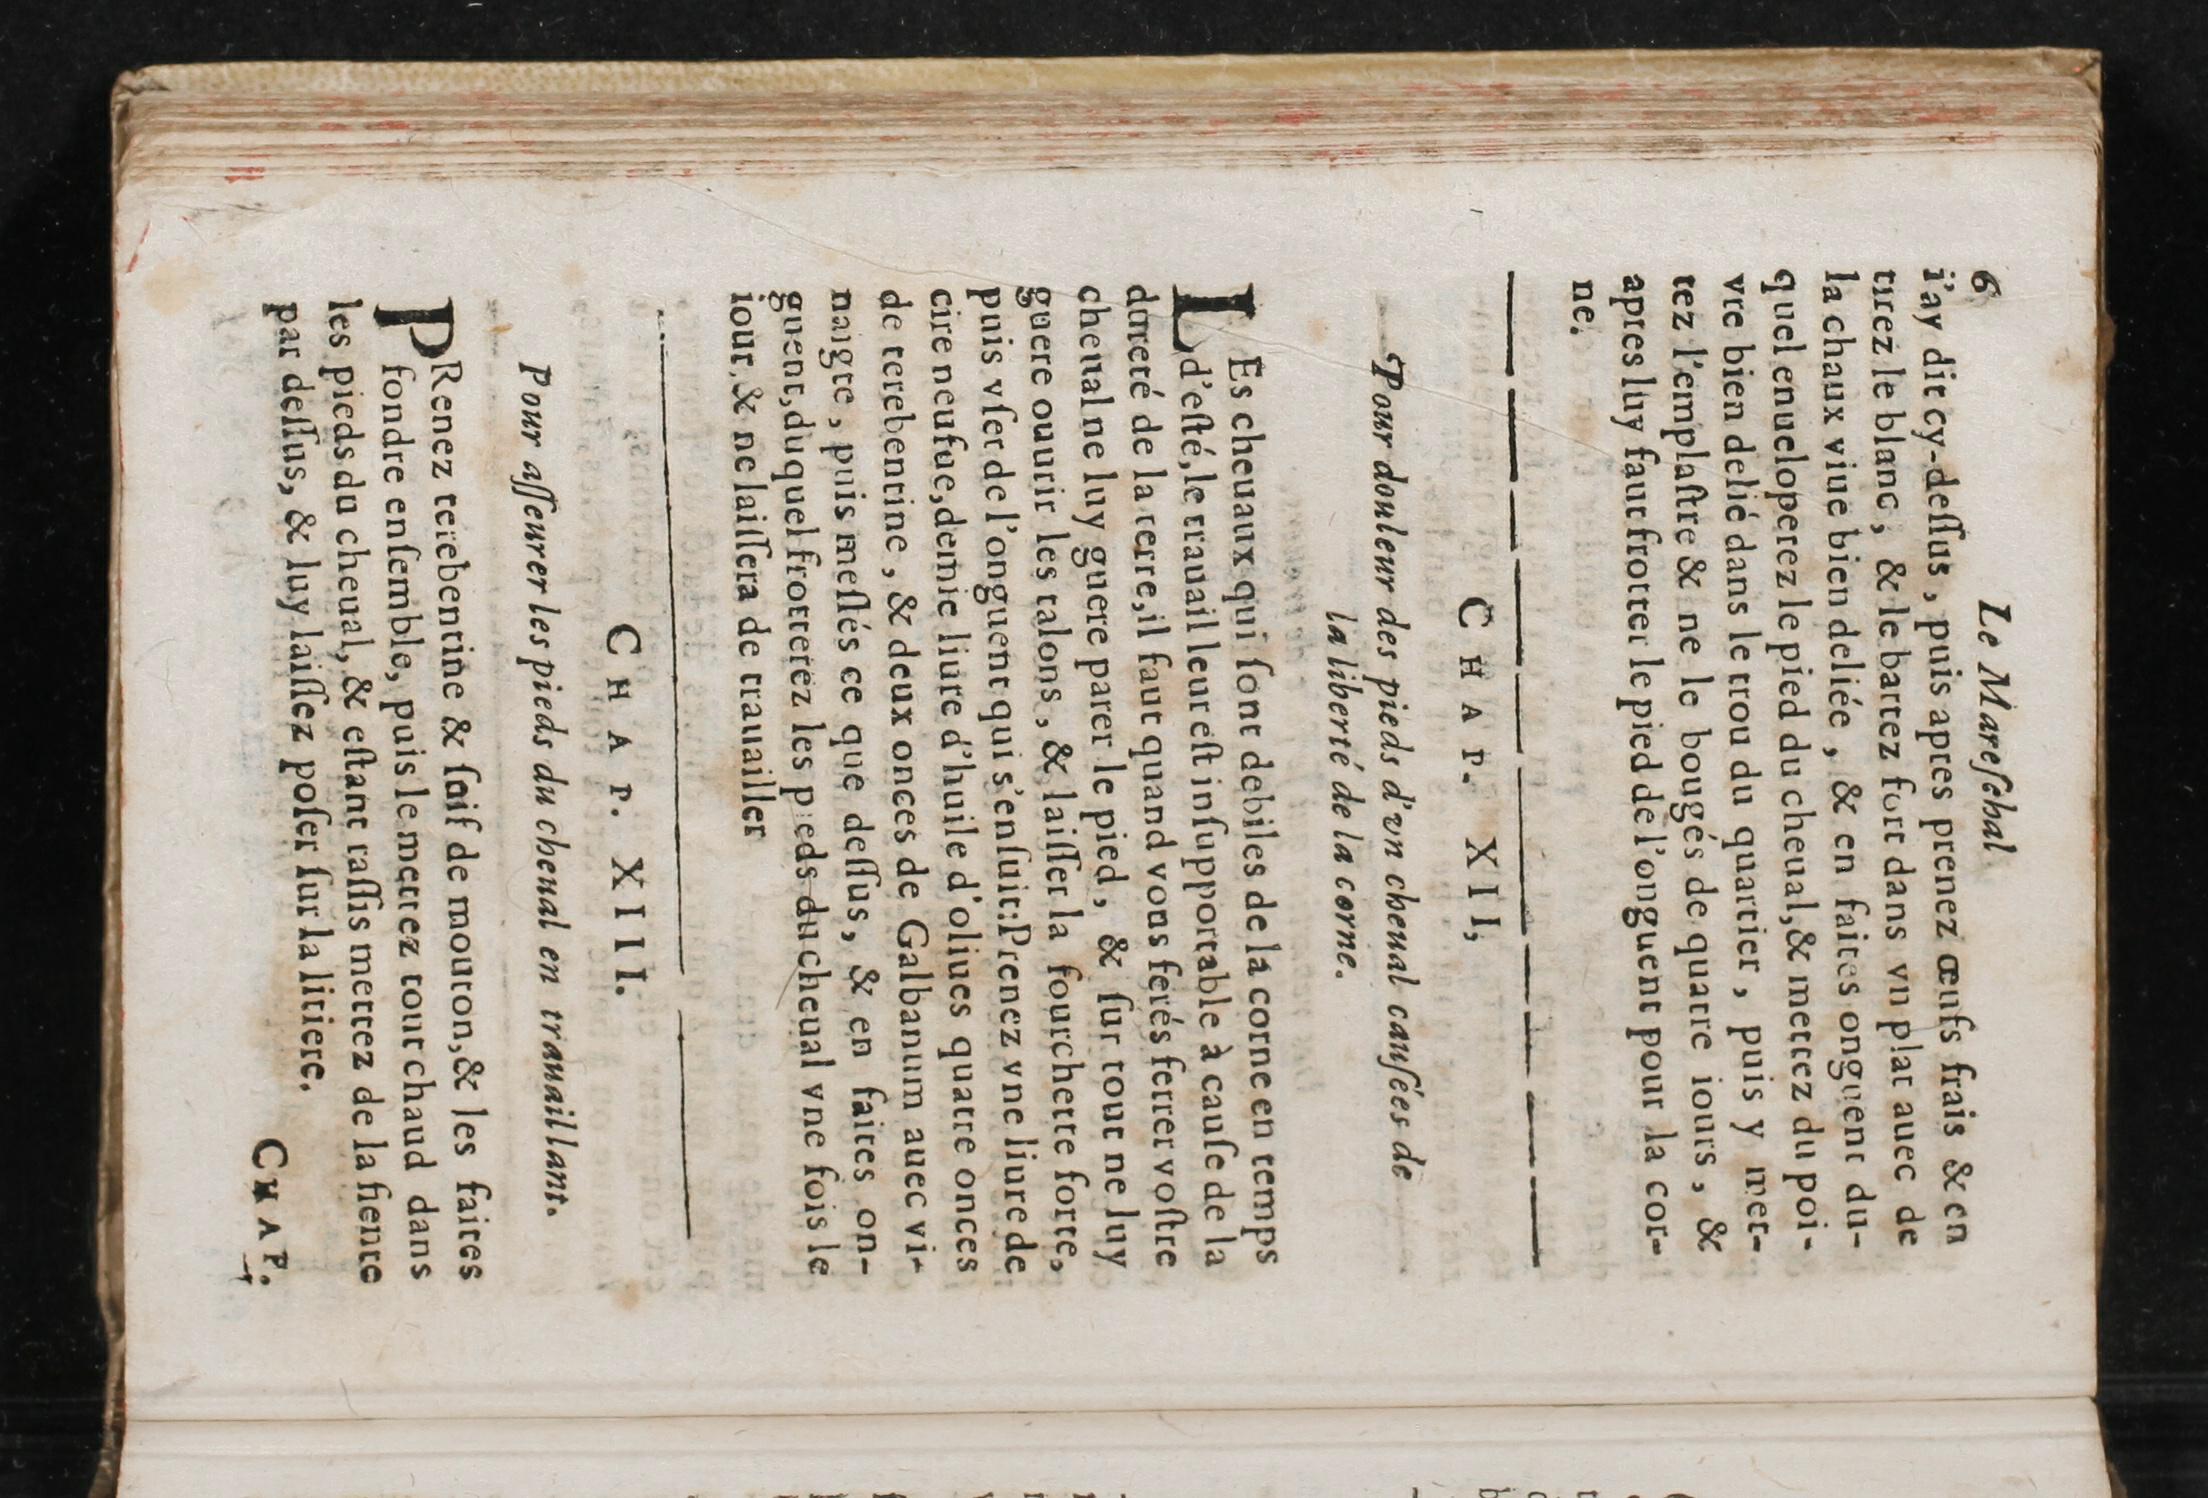 6 Le Mareſchal
i'ay dit cy-deſſus, puis apres prenez œufs frais & en
tirez le blanc, & le battez fort dans vn plat auec de
la chaux viue bien deliée, & en faites onguent du-
quel enueloperez le pied du cheual, & mettez du poi-
vre bien delié dans le trou du quartier, puis y met-
tez l'emplaſtre & ne le bougés de quatre iours, &
apres luy faut frotter le pied de l'onguent pour la cor-
ne.
CHAP. XII,
Pour douleur des pieds d'vn cheual cauſées de
la liberté de la corne.
LEs cheuaux qui ſont debiles de la corne en temps
d'eſté, le trauail leur eſt inſupportable à cauſe de la
dureté de la terre, il faut quand vous ferés ferrer voſtre
cheual ne luy guere parer le pied, & ſur tout ne luy
guere ouurir les talons, & laiſſer la fourchette forte,
puis vſer de l'onguent qui s'enſuit: Prenez vne liure de
cire neufue, demie liure d'huile d'oliues quatre onces
de terebentine, & deux onces de Galbanum auec vi-
naigre, puis meſlés ce que deſſus, & en faites on-
guent, duquel frotterez les pieds du cheual vne fois le
iour, & ne laiſſera de trauailler
CHAP. XIII.
Pour aſſeurer les pieds du cheual en trauaillant.
PRenez terebentine & ſuif de mouton, & les faites
fondre enſemble, puis le mettez tout chaud dans
les pieds du cheual, & eſtant raſſis mettez de la fiente
par deſſus, & luy laiſſez poſer ſur la litiere.
CHAP.